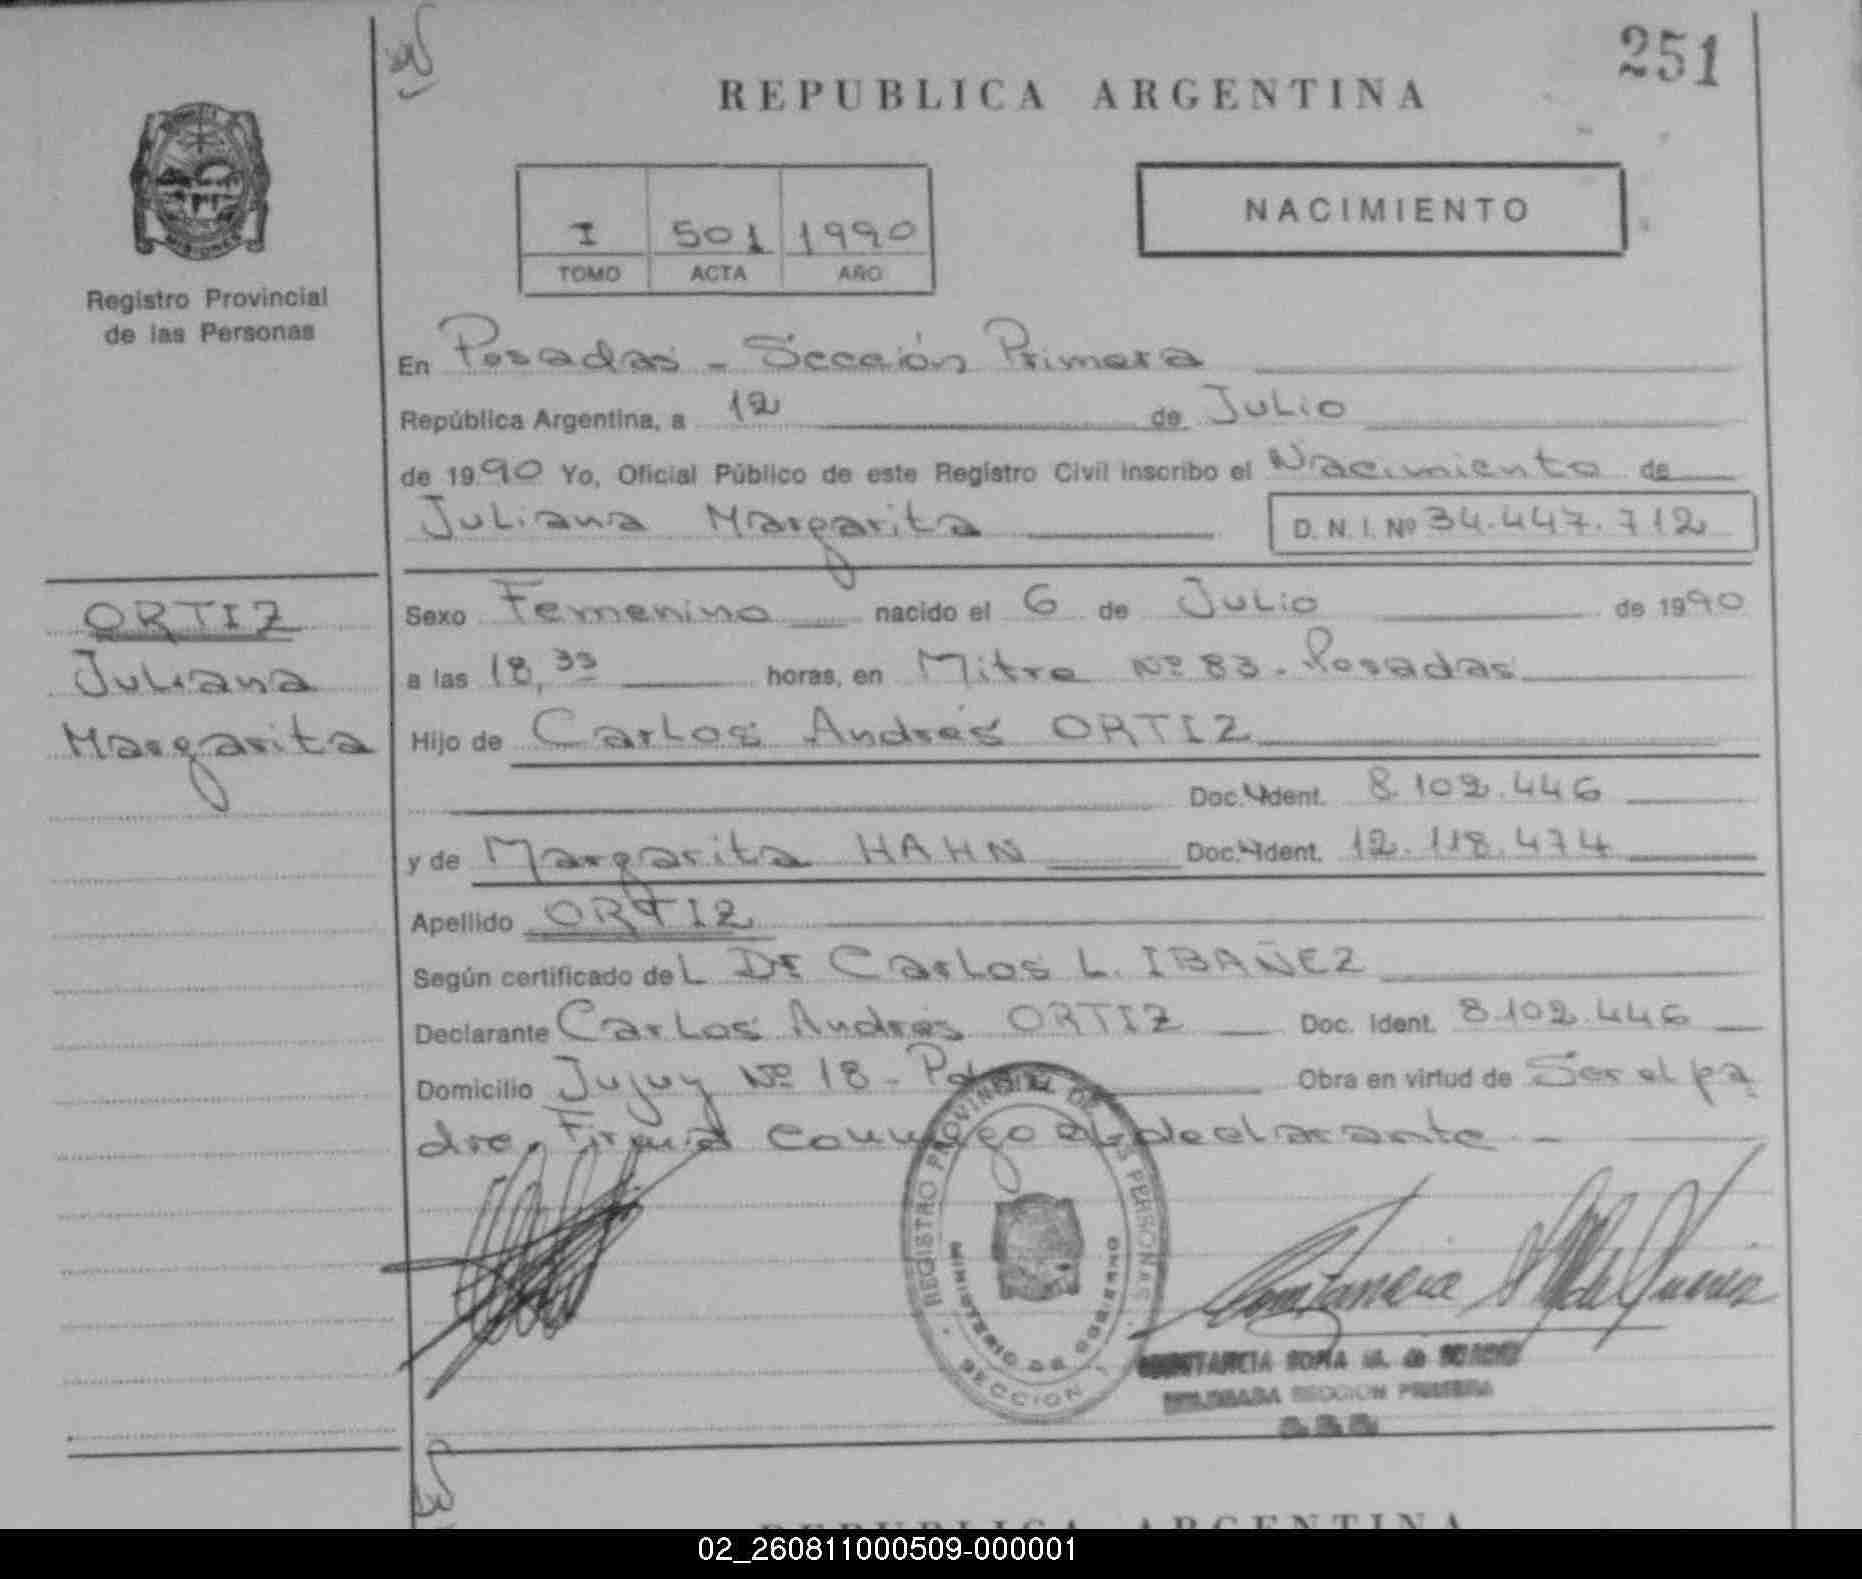 251
REPUBLICA ARGENTINA
NACIMIENTO
I 501 1990
TOMO ACTA AÑO
Registro Provincial
de las Personas
En Posadas - Sección Primera
República Argentina, a 12 de Julio
de 1990 Yo, Oficial Público de este Registro Civil inscribo el Nacimiento de
Juliana Margarita D. N. I. Nº 34.447.712
ORTIZ
Juliana
Margarita
Sexo Femenino nacido el 6 de Julio de 1990
a las 18,35 horas, en Mitre Nº 83 - Posadas
Hijo de Carlos Andrés ORTIZ
Doc. Ident. 8.102.446
y de Margarita HAHN Doc. Ident. 12.118.474
Apellido ORTIZ
Según certificado del Dr Carlos L. IBAÑEZ
Declarante Carlos Andrés ORTIZ Doc. Ident. 8.102.446
Domicilio Jujuy Nº 18 - Obra en virtud de Ser el pa
dre. Firma conmigo el declarante -
REGISTRO PROVINCIAL DE LAS PERSONAS
MINISTERIO DE GOBIERNO
SECCION 1
CONSTANCIA SOFIA M. de
DELEGADA SECCION PRIMERA
REPUBLICA ARGENTINA
02_260811000509-000001